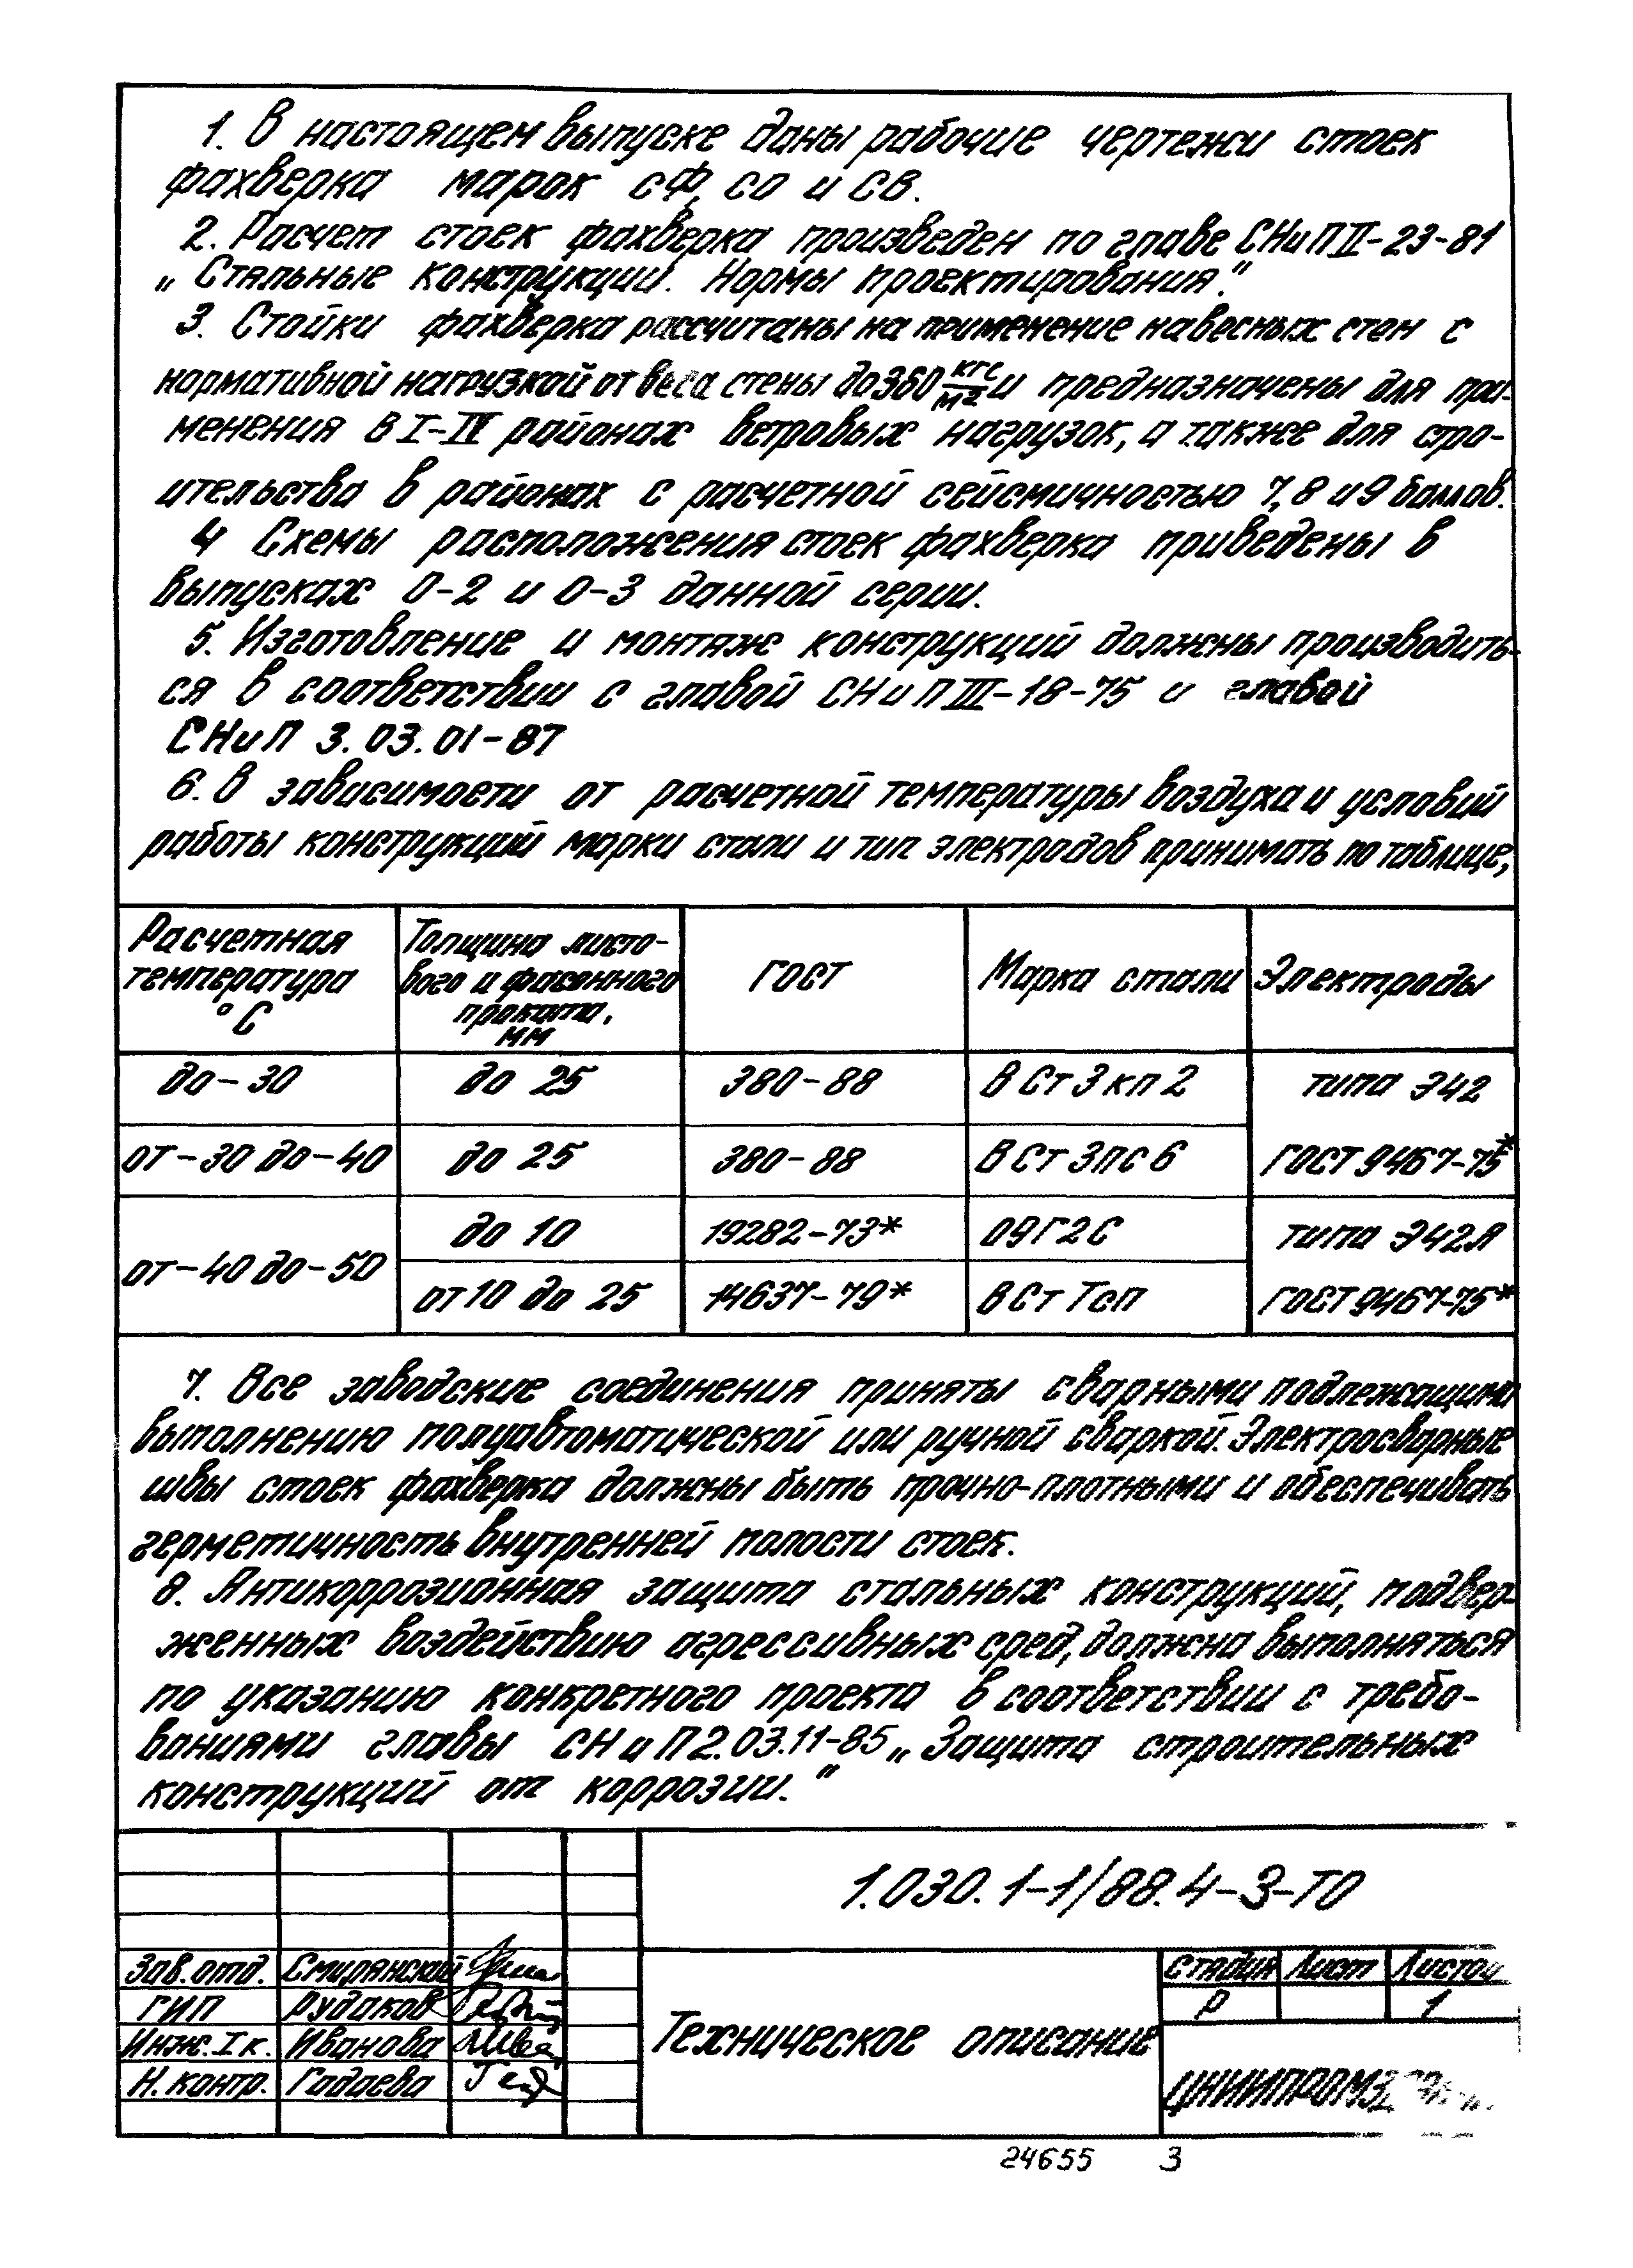 1. В настоящем выпуске даны рабочие чертежи стоек
фахверка марок СФ, СО и СВ.
2. Расчет стоек фахверка произведен по главе СНиП II-23-81
„Стальные конструкции. Нормы проектирования."
3. Стойки фахверка рассчитаны на применение навесных стен с
нормативной нагрузкой от веса стены до 360 кгс/м2 и предназначены для при-
менения в I-IV районах ветровых нагрузок, а также для стро-
ительства в районах с расчетной сейсмичностью 7, 8 и 9 баллов.
4 Схемы расположения стоек фахверка приведены в
выпусках 0-2 и 0-3 данной серии.
5. Изготовление и монтаж конструкций должны производить-
ся в соответствии с главой СНиП III-18-75 и главой
СНиП 3.03.01-87
6. В зависимости от расчетной температуры воздуха и условий
работы конструкций марки стали и тип электродов принимать по таблице,
Расчетная температура °С | Толщина листо-вого и фасонного проката, мм | ГОСТ | Марка стали | Электроды
до -30 | до 25 | 380-88 | В Ст 3 кп 2 | типа Э42
от -30 до -40 | до 25 | 380-88 | В Ст 3 пс 6 | ГОСТ 9467-75*
от -40 до -50 | до 10 | 19282-73* | 09Г2С | типа Э42А
от 10 до 25 | 14637-79* | В Ст Тсп | ГОСТ 9467-75*
7. Все заводские соединения приняты сварными подлежащими
выполнению полуавтоматической или ручной сваркой. Электросварные
швы стоек фахверка должны быть прочно-плотными и обеспечивать
герметичность внутренней полости стоек.
8. Антикоррозионная защита стальных конструкций, подвер-
женных воздействию агрессивных сред, должна выполняться
по указанию конкретного проекта в соответствии с требо-
ваниями главы СНиП 2.03.11-85 „Защита строительных
конструкций от коррозии."
1.030.1-1/88.4-3-ТО
Зав. отд. Смилянский
ГИП Рудаков
Инж. I к. Иванова
Н. контр. Гадаева
Техническое описание
Стадия Лист Листов
Р 1
24655 3